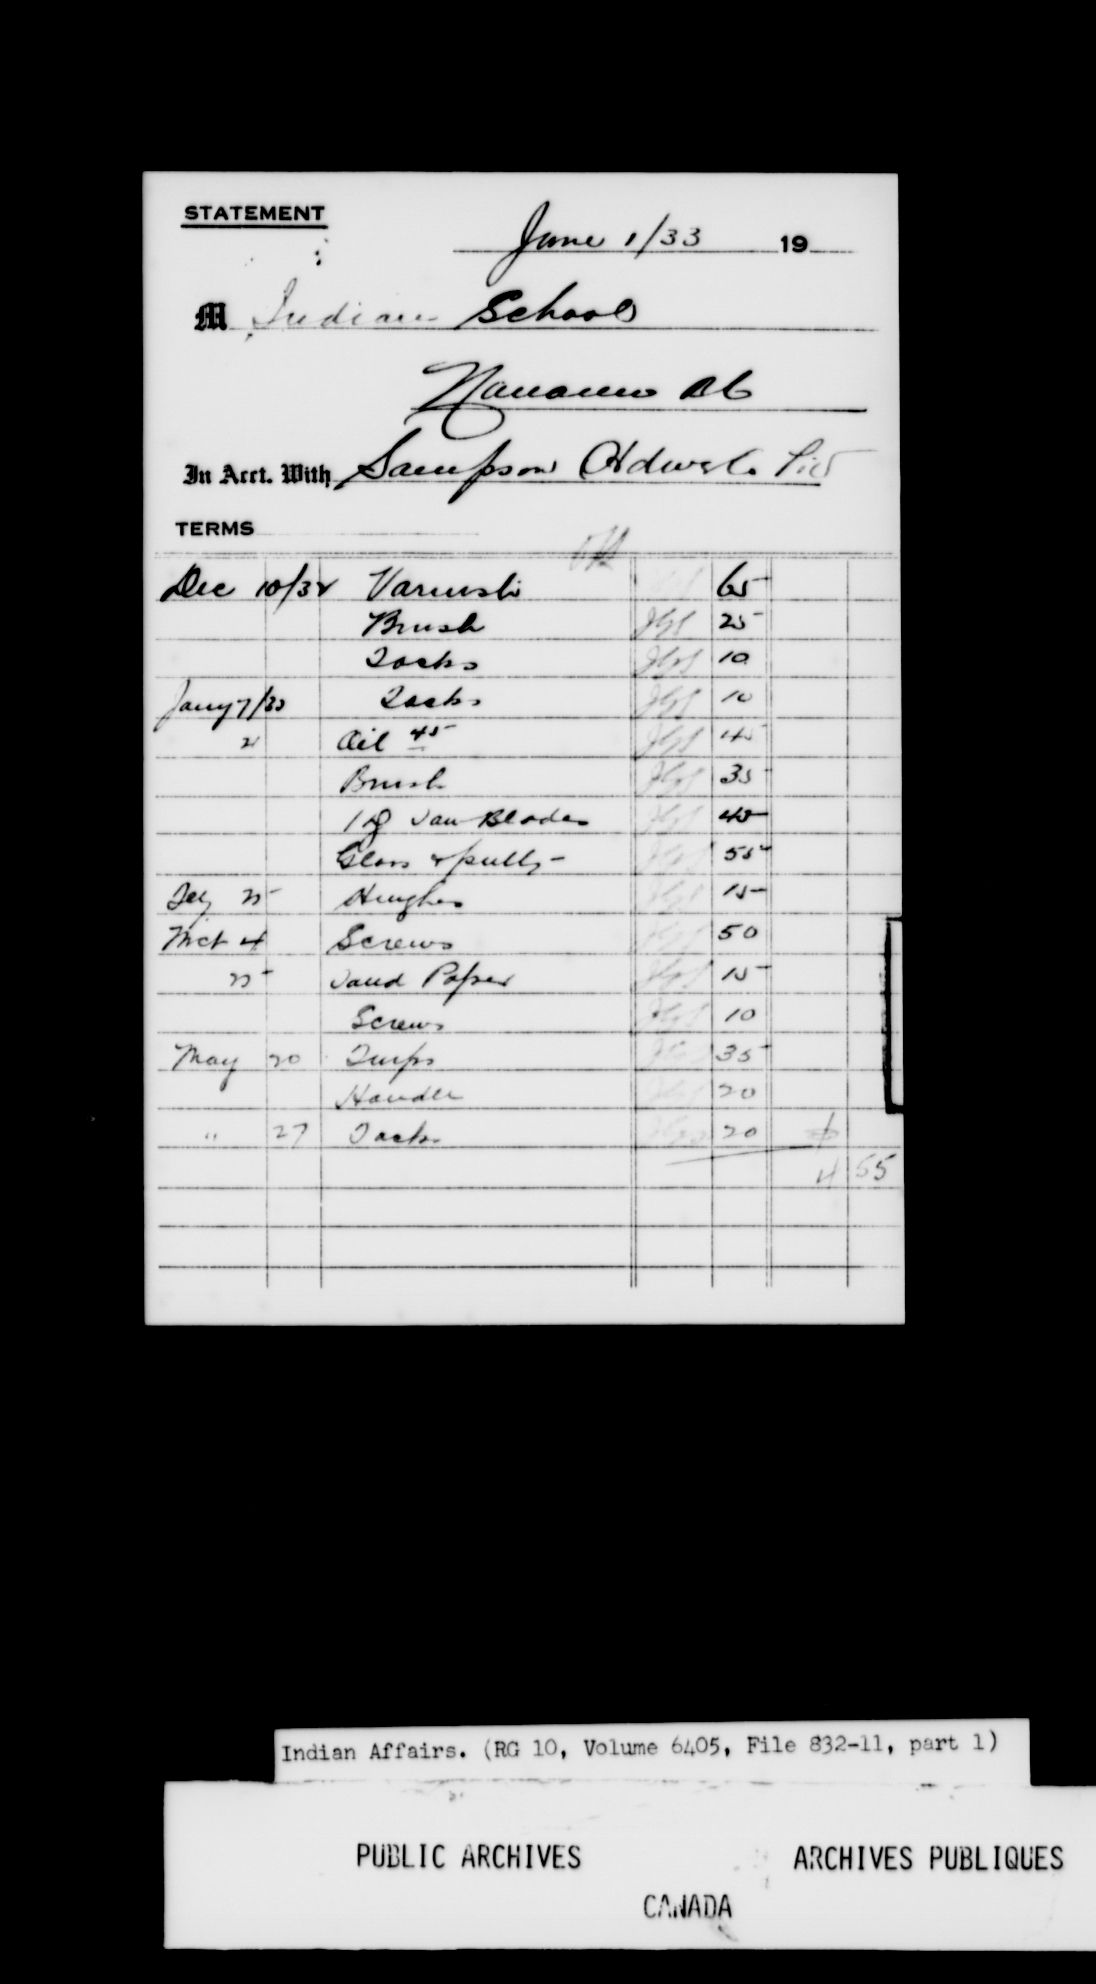 STATEMENT
June 1/33 19
M Indian School
Nanaimo BC
In Acct. With Sampson Hdwe Co Ltd
TERMS
OK
Dec 10/32 Varnish 65
Brush 25
Tacks 10
Jany 7/33 Tacks 10
21 Oil 45 45
Brush 35
1 Saw Blades 45
Glass & putty 55
Feby 25 Hinghes 15
Mct 4 Screws 50
25 Sand Paper 15
Screws 10
May 20 Turps 35
Handle 20
" 27 Tacks 20
$
4 55
Indian Affairs. (RG 10, Volume 6405, File 832-11, part 1)
PUBLIC ARCHIVES ARCHIVES PUBLIQUES
CANADA